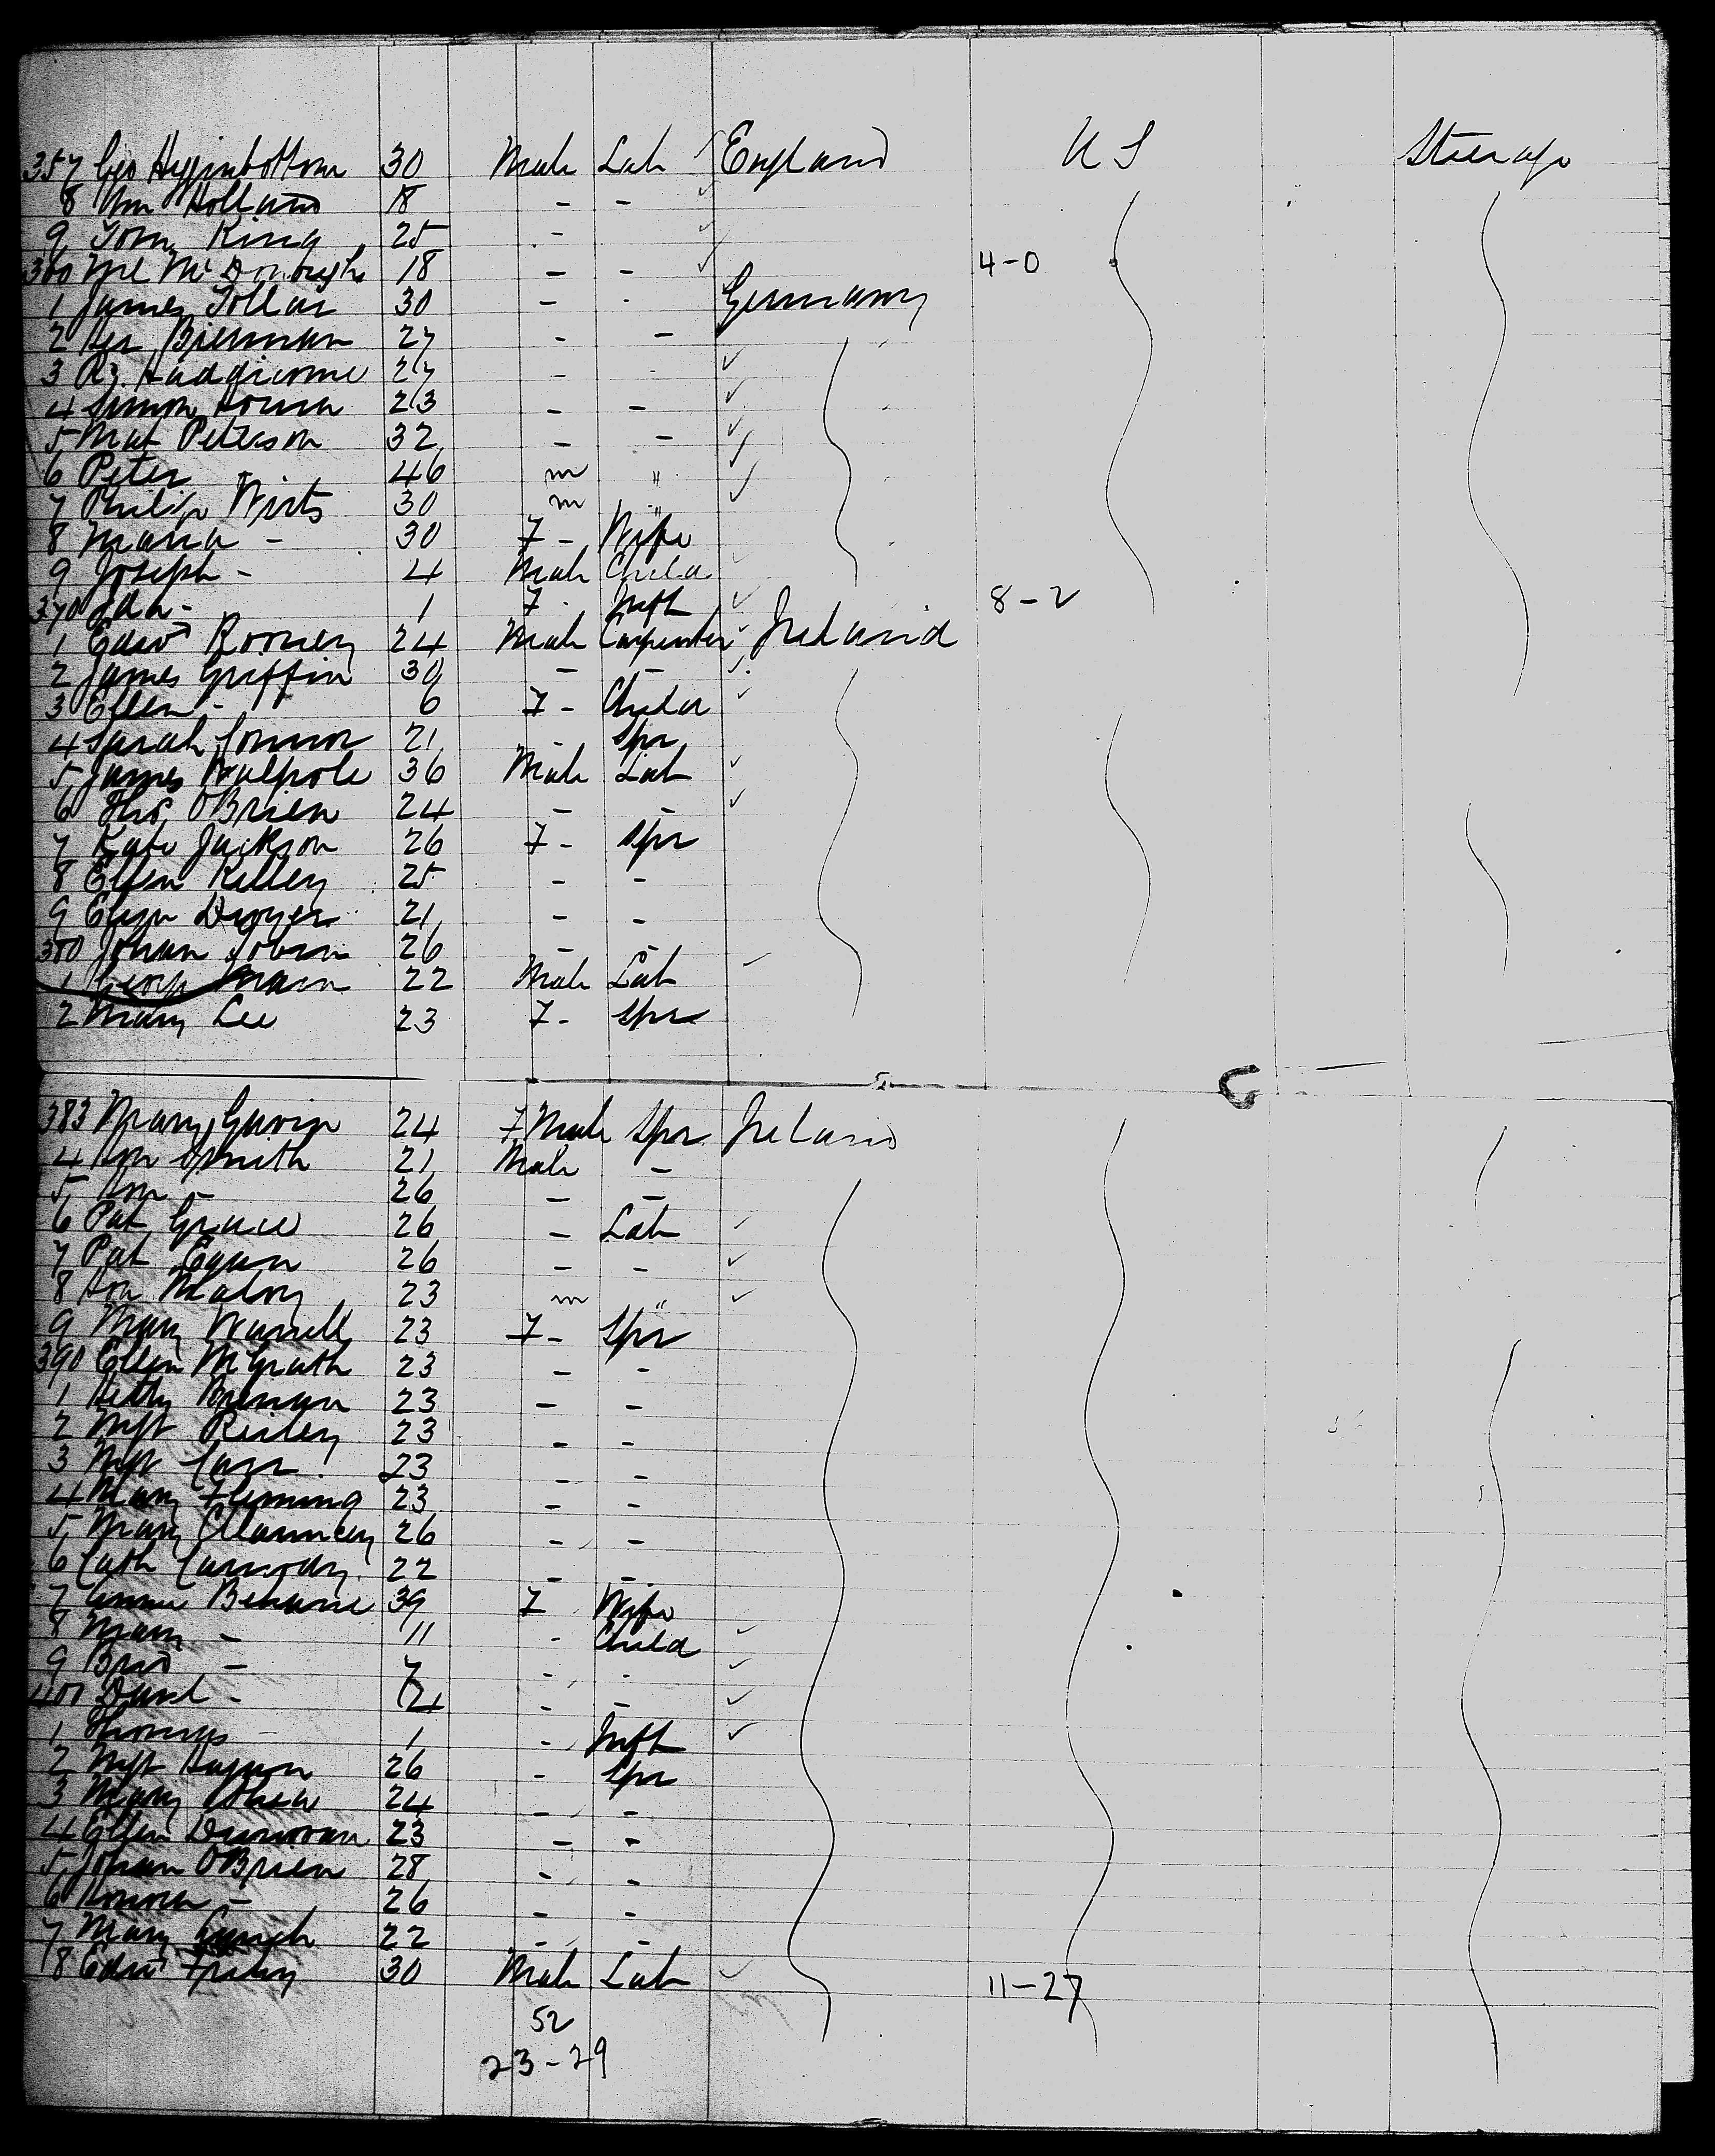 357 Geo Higginbottom 30 Male Lab England U S Steerage
8 Wm Holland 18 - -
9 Tom King 25 -
360 Ml McDonough 18 - - 4-0
1 James Tollar 30 - - Germany
2 Her Bierman 27 - -
3 27 - -
4 Simon 23 - -
5 Mat Peterson 32 - -
6 Peter " 46 m "
7 Philip Wirts 30 m "
8 Maria - 30 F - Wife
9 Joseph - 4 Male Child
370 Ida - 1 F - Inft 8-2
1 Edwd Rooney 24 Male Carpenter Ireland
2 James Griffin 30 - -
3 Ellen - 6 F - Child
4 Sarah Connor 21 - Spr
5 James Walpole 36 Male Lab
6 Thos OBrien 24 - -
7 Kate Jackson 26 F - Spr
8 Ellen Kelley 25 - -
9 Eliza Dwyer 21 - -
380 Johan Tobin 26 - -
1 George Mara 22 Male Lab
2 Mary Lee 23 F - Spr
383 Mary Gavin 24 F Male Spr Ireland
4 Hon Smith 21 Male -
5 Hon - 26 - -
6 Pat Grace 26 - Lab
7 Pat Egan 26 - -
8 Hon Malony 23 m "
9 Mary 23 F - Spr
390 Ellen McGrath 23 - -
1 Betty Brenan 23 - -
2 Mgt 23 - -
3 Mgt Carr 23 - -
4 Mary Fleming 23 - -
5 Mary Clanncey 26 - -
6 Cath Carmody 22 - -
7 Behane 39 F Wife
8 Mary - 11 - Child
9 Brid - 7 - -
400 David - 4 - -
1 Thomas - 1 - Inft
2 Mgt 26 - Spr
3 Mary OShea 24 - -
4 Ellen Dunnovan 23 - -
5 Johan OBrien 28 - -
6 Honora - 26 - -
7 Mary Lynch 22 - -
8 Edwd 30 Male Lab 11-27
52
23-29